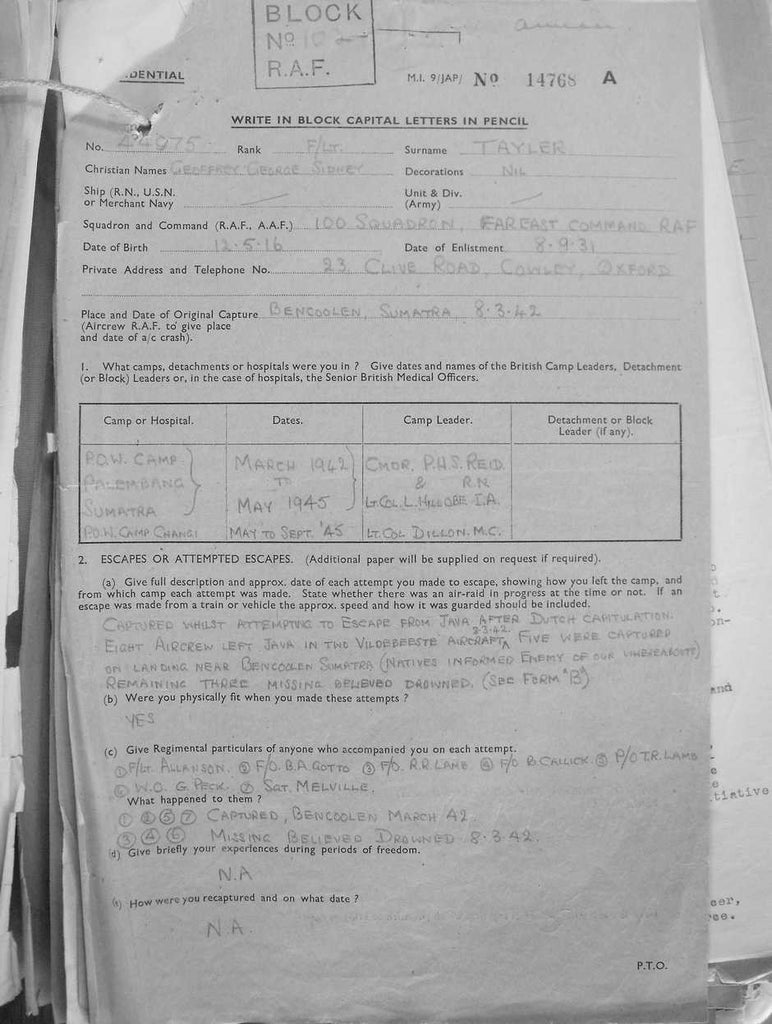 BLOCK
No 102
R.A.F.
DENTIAL
M.I. 9/JAP/ No 14768 A
WRITE IN BLOCK CAPITAL LETTERS IN PENCIL
No. 44975 Rank F/LT. Surname TAYLER
Christian Names GEOFFREY GEORGE SIDNEY Decorations NIL
Ship (R.N., U.S.N. Unit & Div.
or Merchant Navy (Army)
Squadron and Command (R.A.F., A.A.F.) 100 SQUADRON, FAR EAST COMMAND RAF
Date of Birth 12.5.16 Date of Enlistment 8.9.31
Private Address and Telephone No. 23, CLIVE ROAD, COWLEY, OXFORD
Place and Date of Original Capture BENCOOLEN, SUMATRA, 8.3.42
(Aircrew R.A.F. to give place
and date of a/c crash).
1. What camps, detachments or hospitals were you in ? Give dates and names of the British Camp Leaders, Detachment
(or Block) Leaders or, in the case of hospitals, the Senior British Medical Officers.
Camp or Hospital. Dates. Camp Leader. Detachment or Block
Leader (if any).
P.O.W. CAMP MARCH 1942 CMDR. P.H.S. REID.
PALEMBANG TO & R.N.
SUMATRA MAY 1945 LT.COL. L. I.A.
P.O.W. CAMP CHANGI MAY TO SEPT. '45 LT. COL DILLON. M.C.
2. ESCAPES OR ATTEMPTED ESCAPES. (Additional paper will be supplied on request if required).
(a) Give full description and approx. date of each attempt you made to escape, showing how you left the camp, and
from which camp each attempt was made. State whether there was an air-raid in progress at the time or not. If an
escape was made from a train or vehicle the approx. speed and how it was guarded should be included.
CAPTURED WHILST ATTEMPTING TO ESCAPE FROM JAVA AFTER DUTCH CAPITULATION.
EIGHT AIRCREW LEFT JAVA IN TWO VILDEBEESTE AIRCRAFT 2-3-42. FIVE WERE CAPTURED
ON LANDING NEAR BENCOOLEN SUMATRA (NATIVES INFORMED ENEMY OF OUR WHEREABOUTS)
REMAINING THREE MISSING BELIEVED DROWNED. (SEE FORM "B")
(b) Were you physically fit when you made these attempts ?
YES
(c) Give Regimental particulars of anyone who accompanied you on each attempt.
① F/LT. ALLANSON. ② F/O. B.A. GOTTO ③ F/O. R.R. LAMB ④ F/O B. CALLICK. ⑤ P/O T.R. LAMB
⑥ W.O. G. PECK. ⑦ SGT. MELVILLE.
What happened to them ?
① ② ⑤ ⑦ CAPTURED, BENCOOLEN MARCH 42.
③ ④ ⑥ MISSING BELIEVED DROWNED 8.3.42.
(d) Give briefly your experiences during periods of freedom.
N.A
(e) How were you recaptured and on what date ?
N.A.
P.T.O.